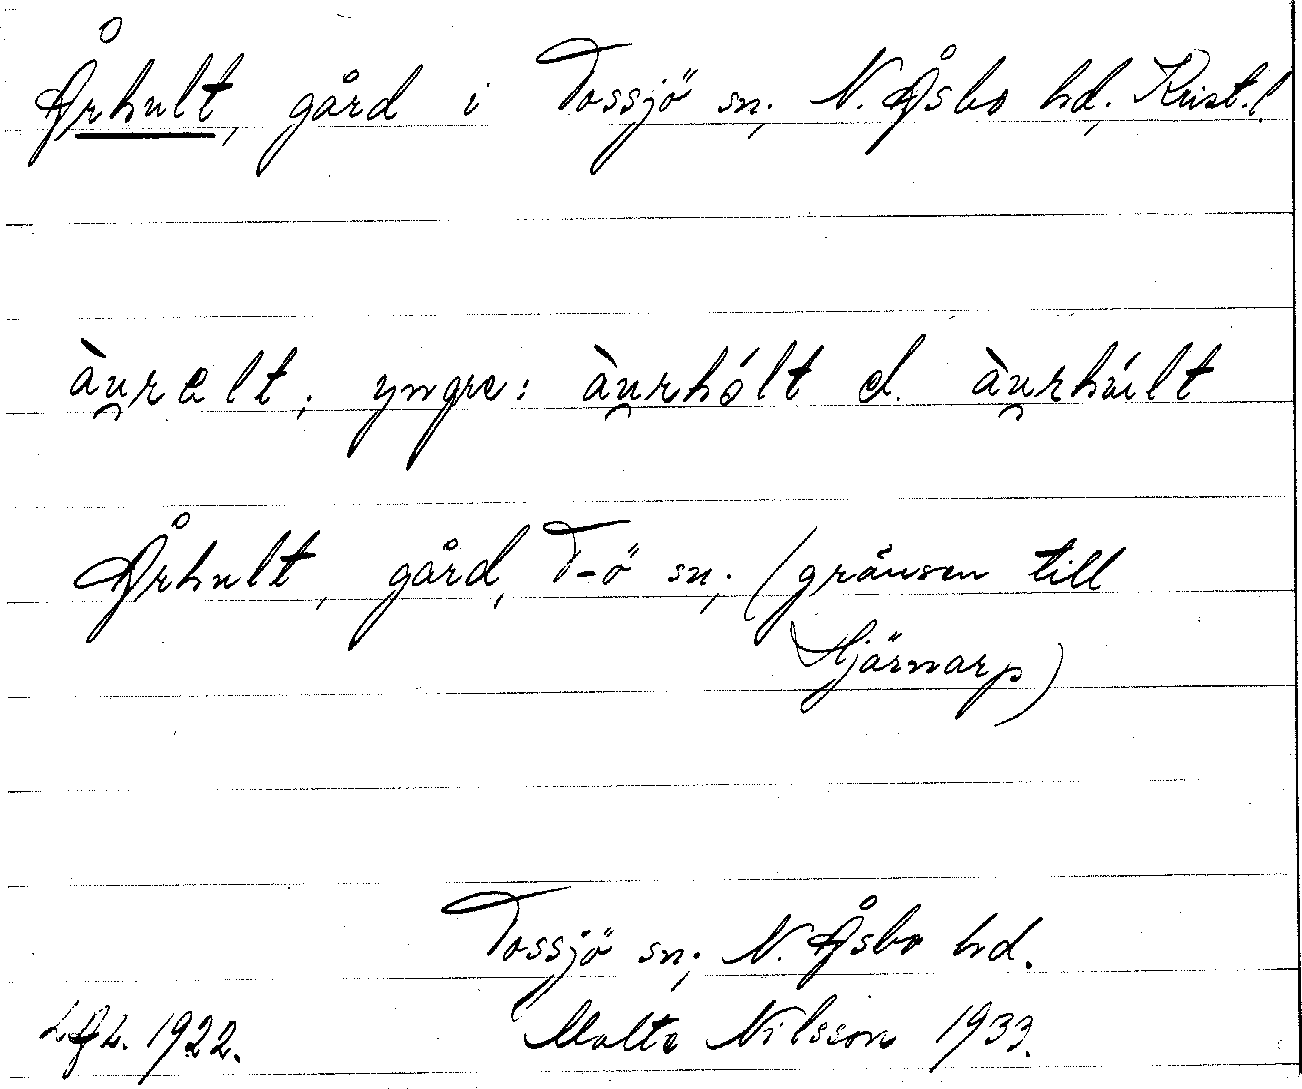 Århult, gård i Tossjö sn; N. Åsbo hd, Krist. l.
àu̯relt; yngre: àu̯rhólt el. àu̯rhúlt
Århult, gård, T-ö sn; (gränsen till
Hjärnarp)
Tossjö sn; N. Åsbo hd.
1922. Malte Nilsson 1933.